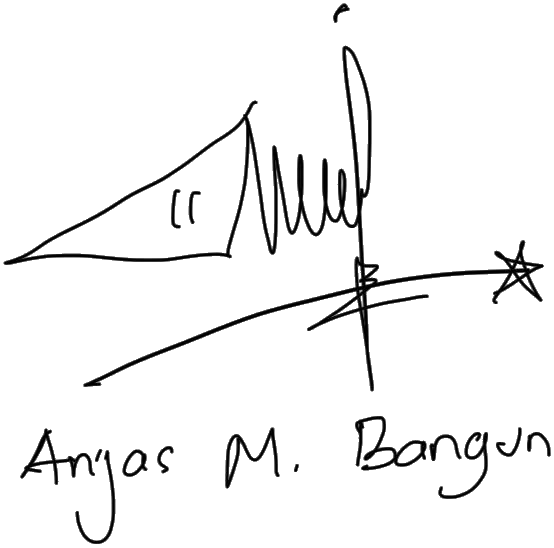 Anjas M. Bangun